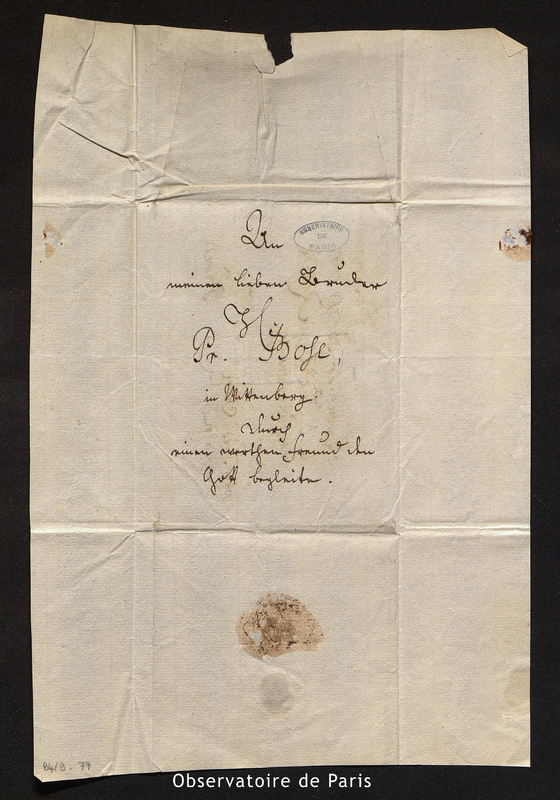 An
OBSERVATOIRE
DE
PARIS
meinen lieben Bruder
Pr. Bose,
in Wittenberg.
durch
einen werthen Freund den
Gott begleite.
B4/9-77
Observatoire de Paris